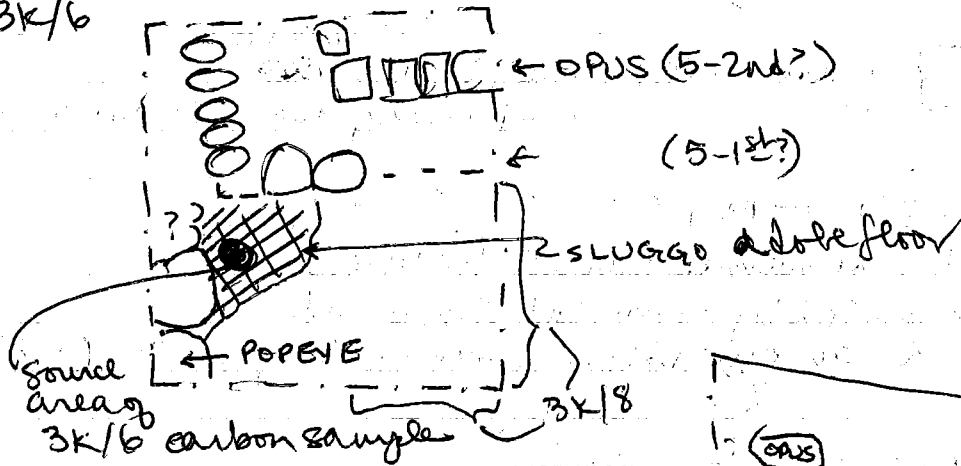 3K/6
← OPUS (5-2nd?)
← (5-1st?)
? ?
SLUGGO adobe floor
← POPEYE
source
area of
3K/6 carbon sample
3K/8
OPUS